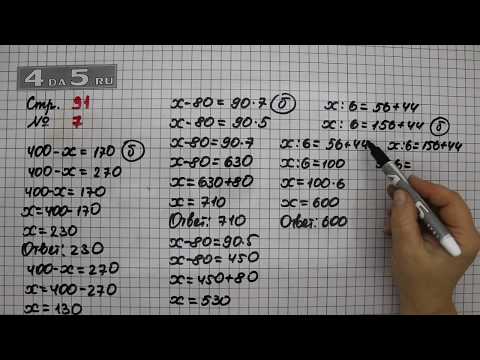 4 DA 5.RU
Стр. 91
№ 7
400-x=170 (б)
400-x=270
400-x=170
x=400-170
x=230
Ответ: 230
400-x=270
x=400-270
x=130
x-80=90·7 (б)
x-80=90·5
x-80=90·7
x-80=630
x=630+80
x=710
Ответ: 710
x-80=90·5
x-80=450
x=450+80
x=530
x:6=56+44
x:6=156+44 (б)
x:6=56+44
x:6=100
x=100·6
x=600
Ответ: 600
x:6=156+44
6=